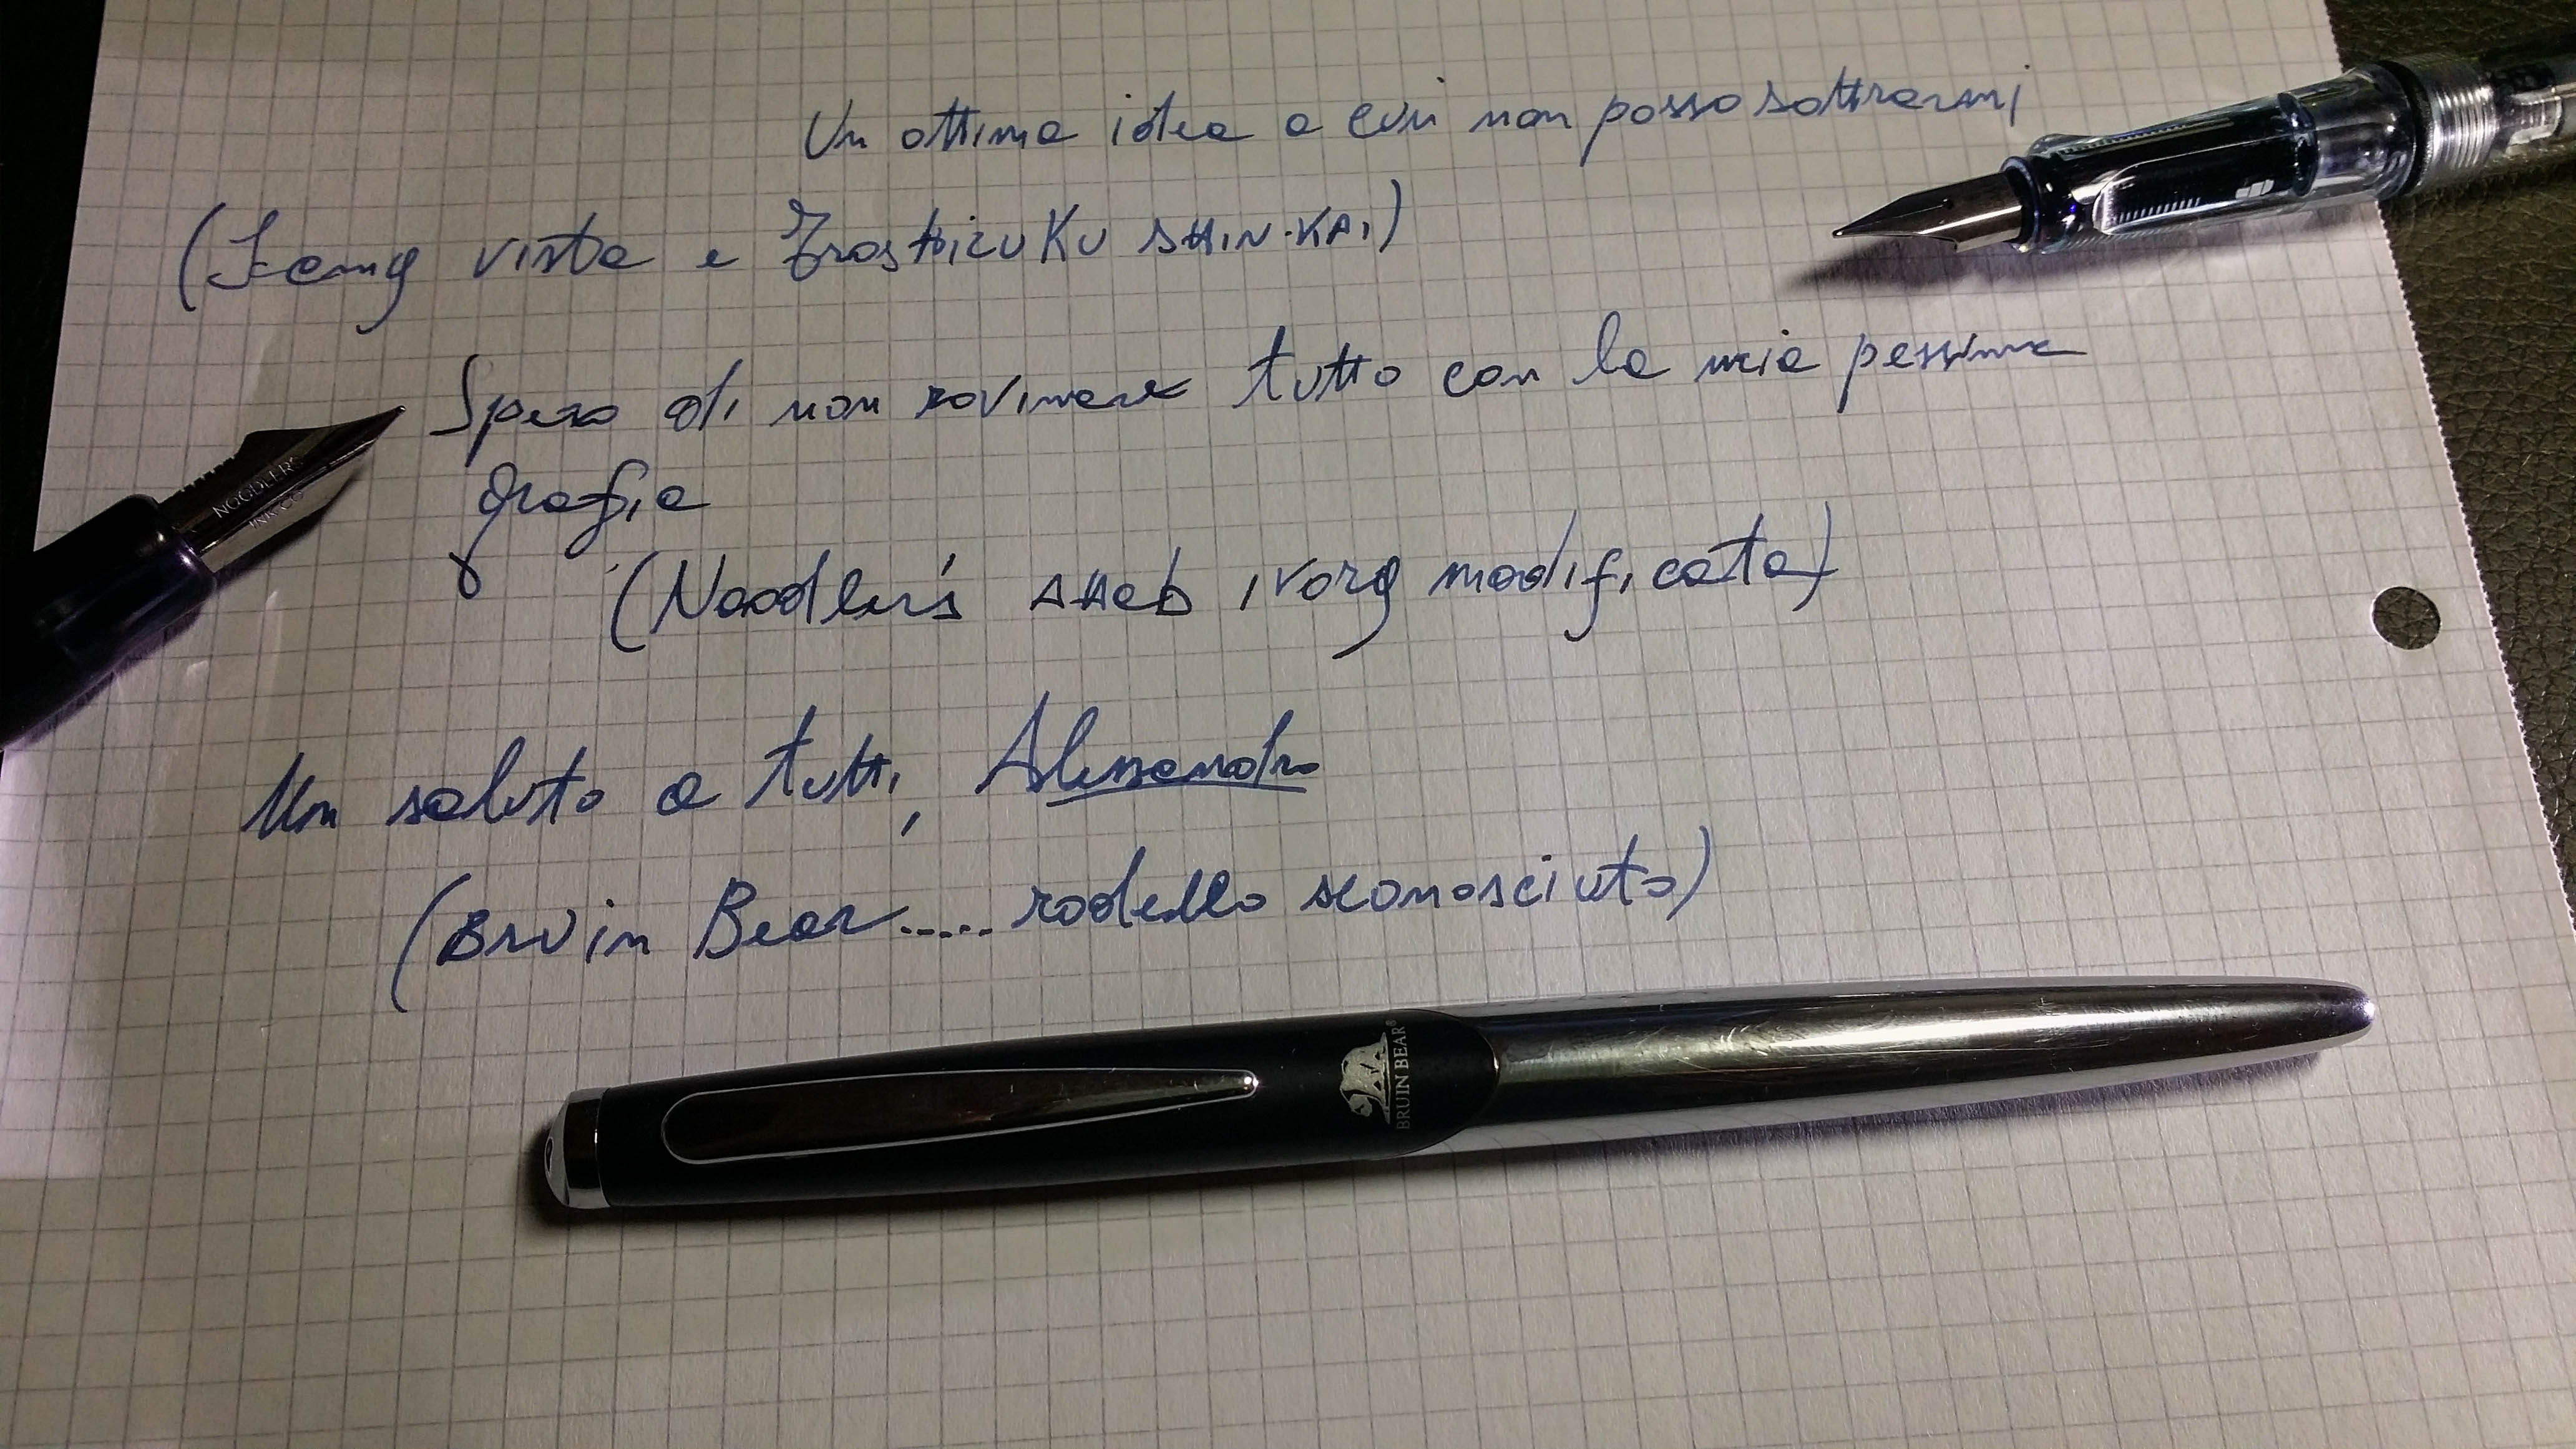 Un ottima idea a cui non posso sottrarmi
(Lamy vista e Iroshizuku SHIN-KAI)
Spero di non rovinare tutto con la mia pessima
grafia
(Noodler's ahab ivory modificata)
Un saluto a tutti, Alessandro
(Bruin Bear..... modello sconosciuto)
NOODLERS
INK CO
BRUIN BEAR®